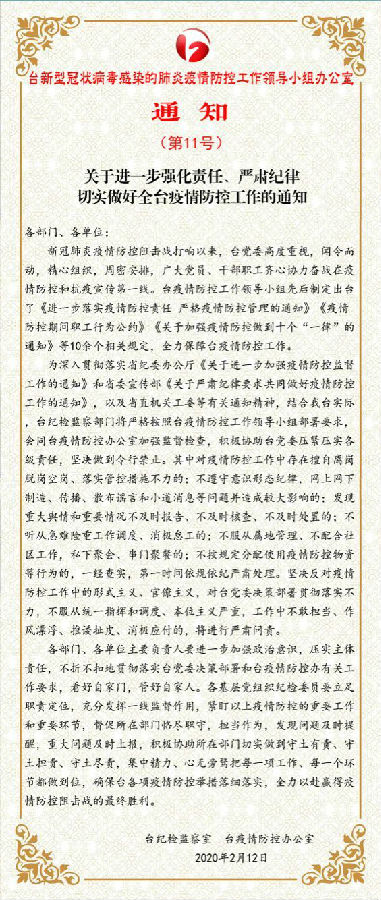 台新型冠状病毒感染的肺炎疫情防控工作领导小组办公室
通 知
（第11号）
关于进一步强化责任、严肃纪律
切实做好全台疫情防控工作的通知
各部门、各单位：
新冠肺炎疫情防控阻击战打响以来，台党委高度重视，闻令而
动，精心组织，周密安排，广大党员、干部职工齐心协力奋战在疫
情防控和抗疫宣传第一线。台疫情防控工作领导小组先后制定出台
了《进一步落实疫情防控责任 严格疫情防控管理的通知》《疫情
防控期间职工行为公约》《关于加强疫情防控做到十个“一律”的
通知》等10余个相关规定，全力保障台疫情防控工作。
为深入贯彻落实省纪委办公厅《关于进一步加强疫情防控监督
工作的通知》和省委宣传部《关于严肃纪律要求共同做好疫情防控
工作的通知》，以及省直机关工委等有关通知精神，结合我台实际
，台纪检监察部门将严格按照台疫情防控工作领导小组部署要求，
会同台疫情防控办公室加强监督检查，积极协助台党委压紧压实各
级责任，坚决做到令行禁止。其中对疫情防控工作中存在擅自离岗
脱岗空岗、落实管控措施不力的；不遵守意识形态纪律，网上网下
制造、传播、散布谣言和小道消息等问题并造成较大影响的；发现
重大舆情和重要情况不及时报告、不及时核查、不及时处置的；不
听从急难险重工作调度、消极怠工的；不服从属地管理、不配合社
区工作，私下聚会、串门聚餐的；不按规定分配使用疫情防控物资
等行为的，一经查实，第一时间依规依纪严肃处理。坚决反对疫情
防控工作中的形式主义、官僚主义，对台党委决策部署贯彻落实不
力，不服从统一指挥和调度、本位主义严重，工作中不敢担当、作
风漂浮、推诿扯皮、消极应付的，将进行严肃问责。
各部门、各单位主要负责人要进一步加强政治意识，压实主体
责任，不折不扣地贯彻落实台党委决策部署和台疫情防控办有关工
作要求，看好自家门，管好自家人。各基层党组织纪检委员要立足
职责定位，充分发挥一线监督作用，紧盯以上疫情防控的重要工作
和重要环节，督促所在部门恪尽职守，担当作为，发现问题及时提
醒，重大问题及时上报，积极协助所在部门切实做到守土有责、守
土担责、守土尽责，集中精力、心无旁骛把每一项工作、每一个环
节都做到位，确保台各项疫情防控举措落细落实，全力以赴赢得疫
情防控阻击战的最终胜利。
台纪检监察室 台疫情防控办公室
2020年2月12日